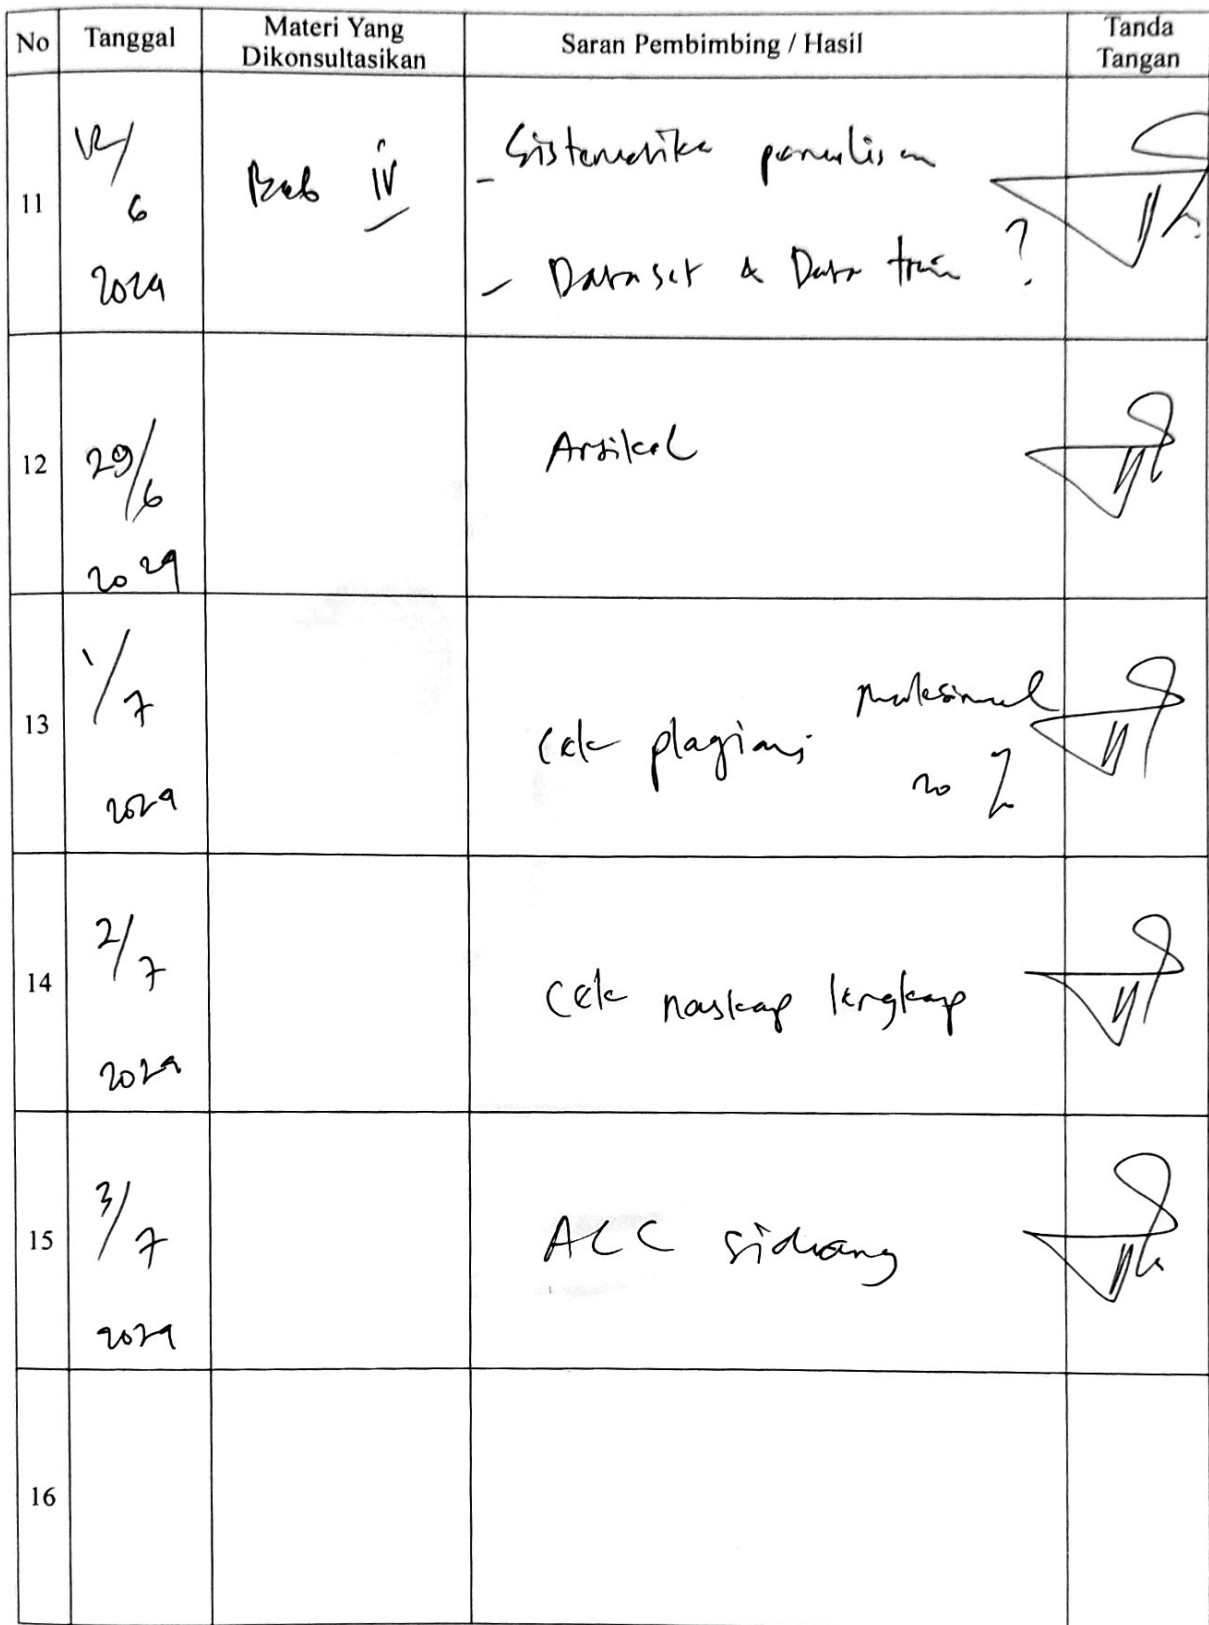 No Tanggal Materi Yang Dikonsultasikan Saran Pembimbing / Hasil Tanda Tangan
11 12/6 2024 Bab IV - Sistematika penulisan
- Dataset & Data train ?
12 29/6 2024 Artikel
13 1/7 2024 Cek plagiasi maksimal 20 %
14 2/7 2024 Cek naskap lengkap
15 3/7 2024 ACC sidang
16